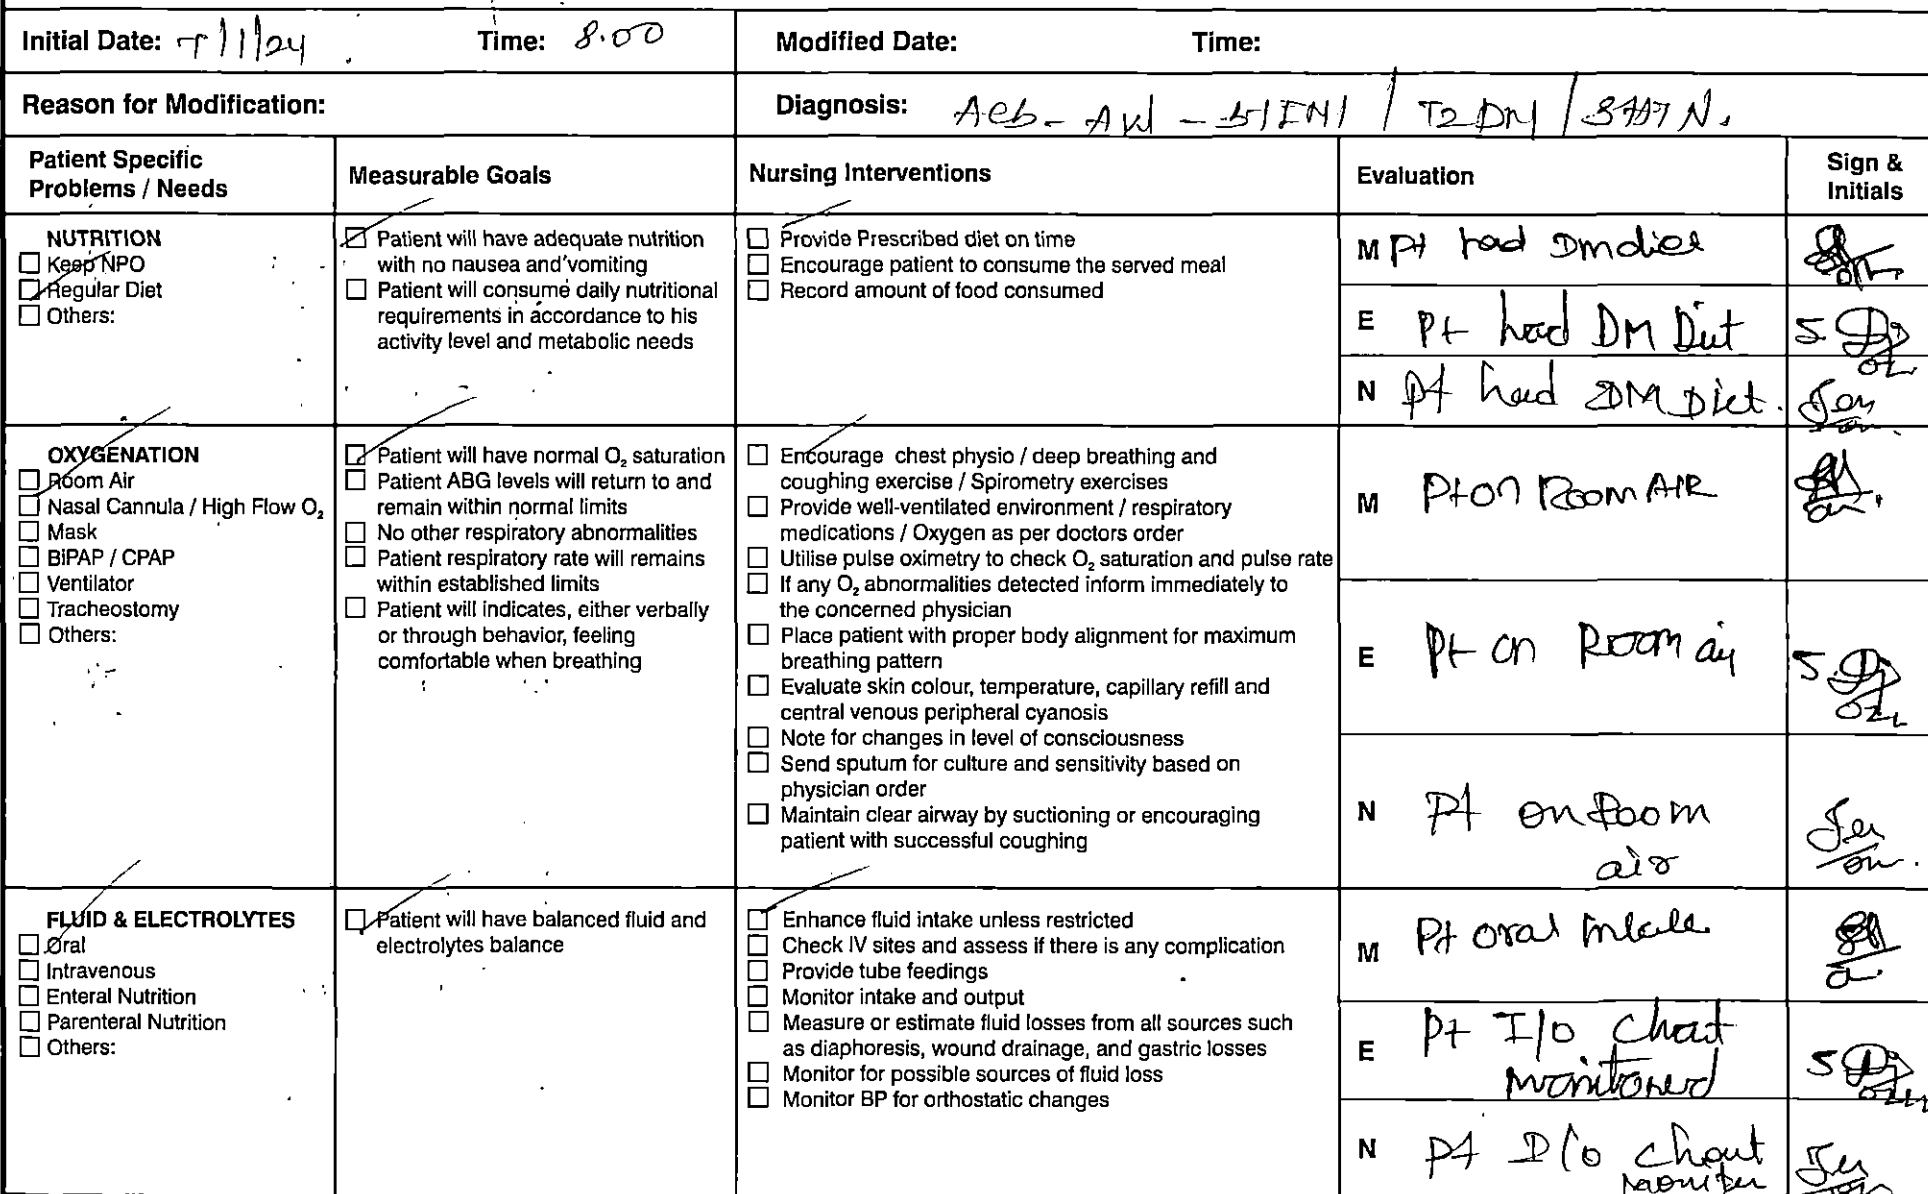 Initial Date: /1/24 Time: 8.00 Modified Date: Time:
Reason for Modification: Diagnosis: / T2DM /
Patient Specific
Problems / Needs
Measurable Goals
Nursing Interventions
Evaluation
Sign &
Initials
NUTRITION
☐ Keep NPO
☐ Regular Diet
☐ Others:
☐ Patient will have adequate nutrition
with no nausea and vomiting
☐ Patient will consume daily nutritional
requirements in accordance to his
activity level and metabolic needs
☐ Provide Prescribed diet on time
☐ Encourage patient to consume the served meal
☐ Record amount of food consumed
M Pt had Dm diet
E Pt had DM Diet
N Pt had DM Diet.
OXYGENATION
☐ Room Air
☐ Nasal Cannula / High Flow O₂
☐ Mask
☐ BiPAP / CPAP
☐ Ventilator
☐ Tracheostomy
☐ Others:
☐ Patient will have normal O₂ saturation
☐ Patient ABG levels will return to and
remain within normal limits
☐ No other respiratory abnormalities
☐ Patient respiratory rate will remains
within established limits
☐ Patient will indicates, either verbally
or through behavior, feeling
comfortable when breathing
☐ Encourage chest physio / deep breathing and
coughing exercise / Spirometry exercises
☐ Provide well-ventilated environment / respiratory
medications / Oxygen as per doctors order
☐ Utilise pulse oximetry to check O₂ saturation and pulse rate
☐ If any O₂ abnormalities detected inform immediately to
the concerned physician
☐ Place patient with proper body alignment for maximum
breathing pattern
☐ Evaluate skin colour, temperature, capillary refill and
central venous peripheral cyanosis
☐ Note for changes in level of consciousness
☐ Send sputum for culture and sensitivity based on
physician order
☐ Maintain clear airway by suctioning or encouraging
patient with successful coughing
M Pt on Room AIR
E Pt on Room air
N Pt on Room
air
FLUID & ELECTROLYTES
☐ Oral
☐ Intravenous
☐ Enteral Nutrition
☐ Parenteral Nutrition
☐ Others:
☐ Patient will have balanced fluid and
electrolytes balance
☐ Enhance fluid intake unless restricted
☐ Check IV sites and assess if there is any complication
☐ Provide tube feedings
☐ Monitor intake and output
☐ Measure or estimate fluid losses from all sources such
as diaphoresis, wound drainage, and gastric losses
☐ Monitor for possible sources of fluid loss
☐ Monitor BP for orthostatic changes
M Pt oral intake
E Pt I/o Chart
monitored
N Pt I/o chart